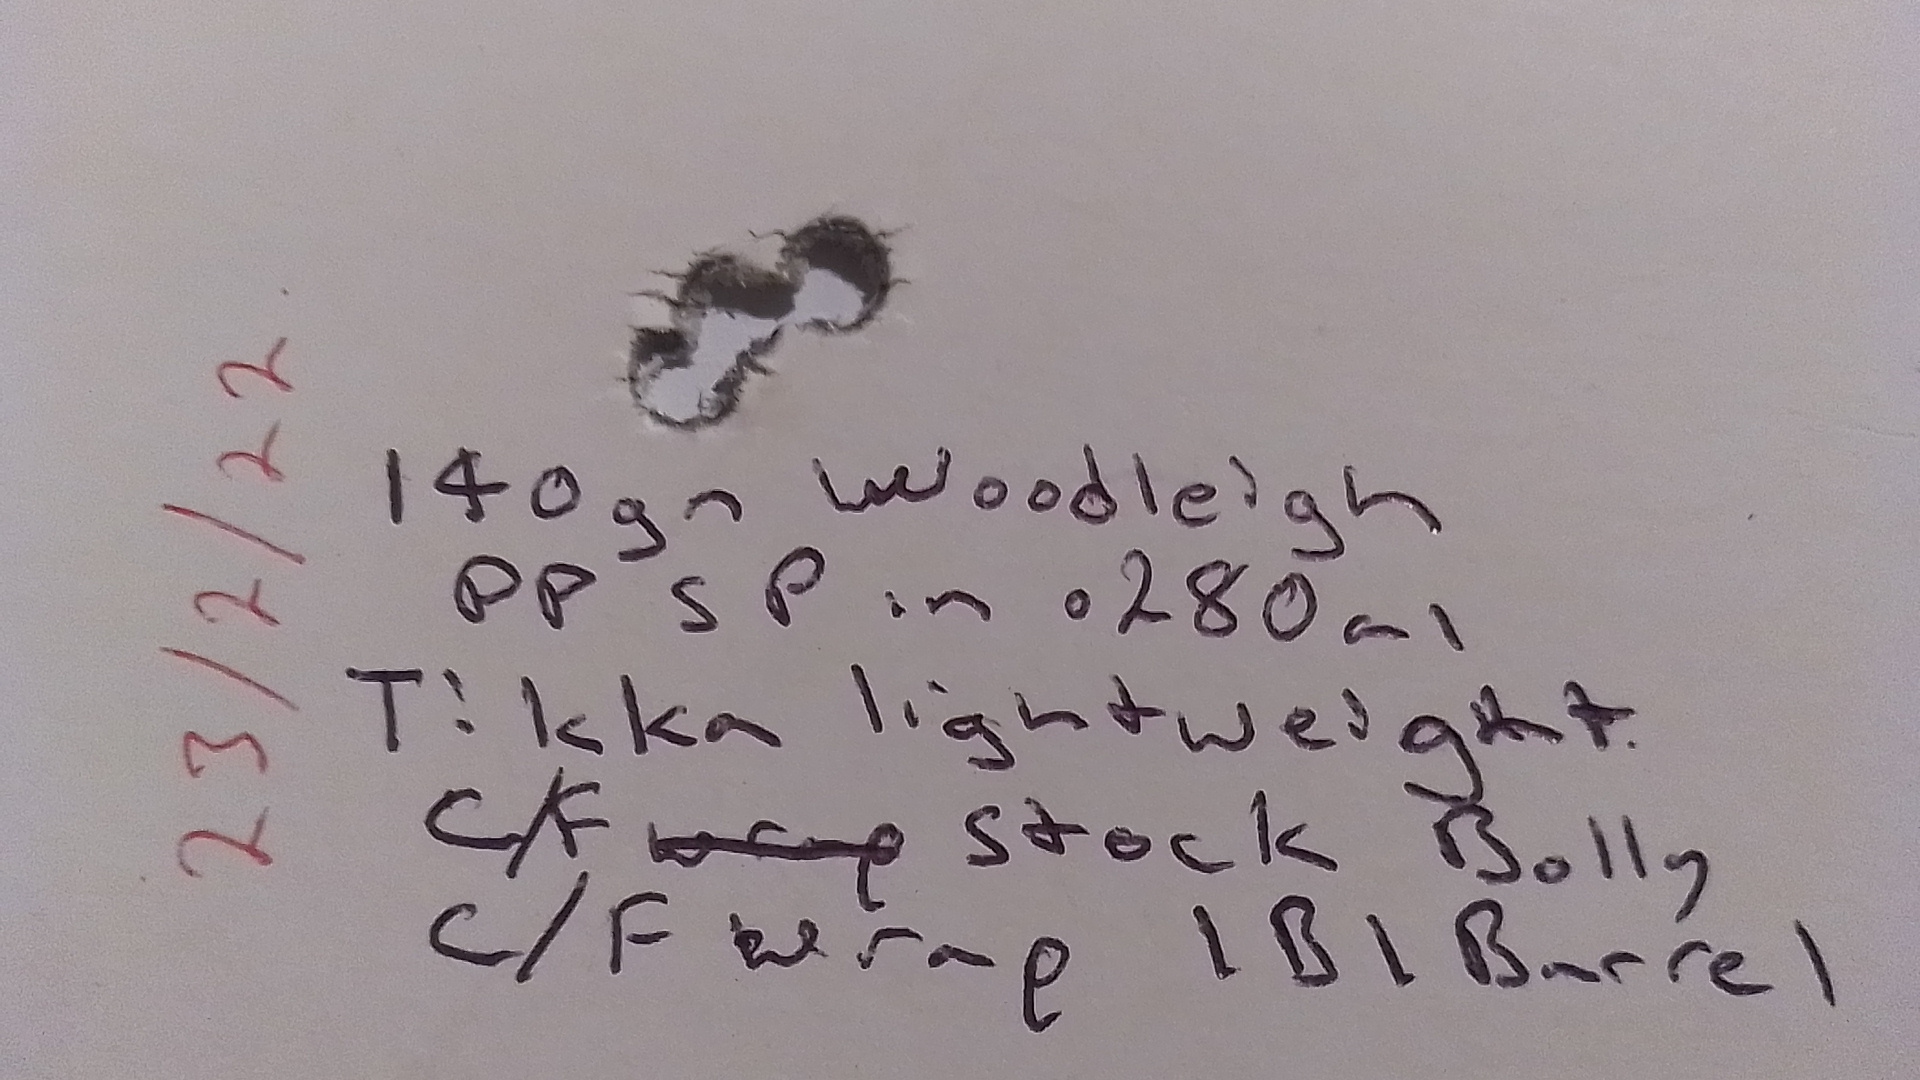 140gn Woodleigh
PP SP in .280ai
Tikka lightweight.
C/F wrap stock Bolly
C/F wrap IBI Barrel
23/2/22